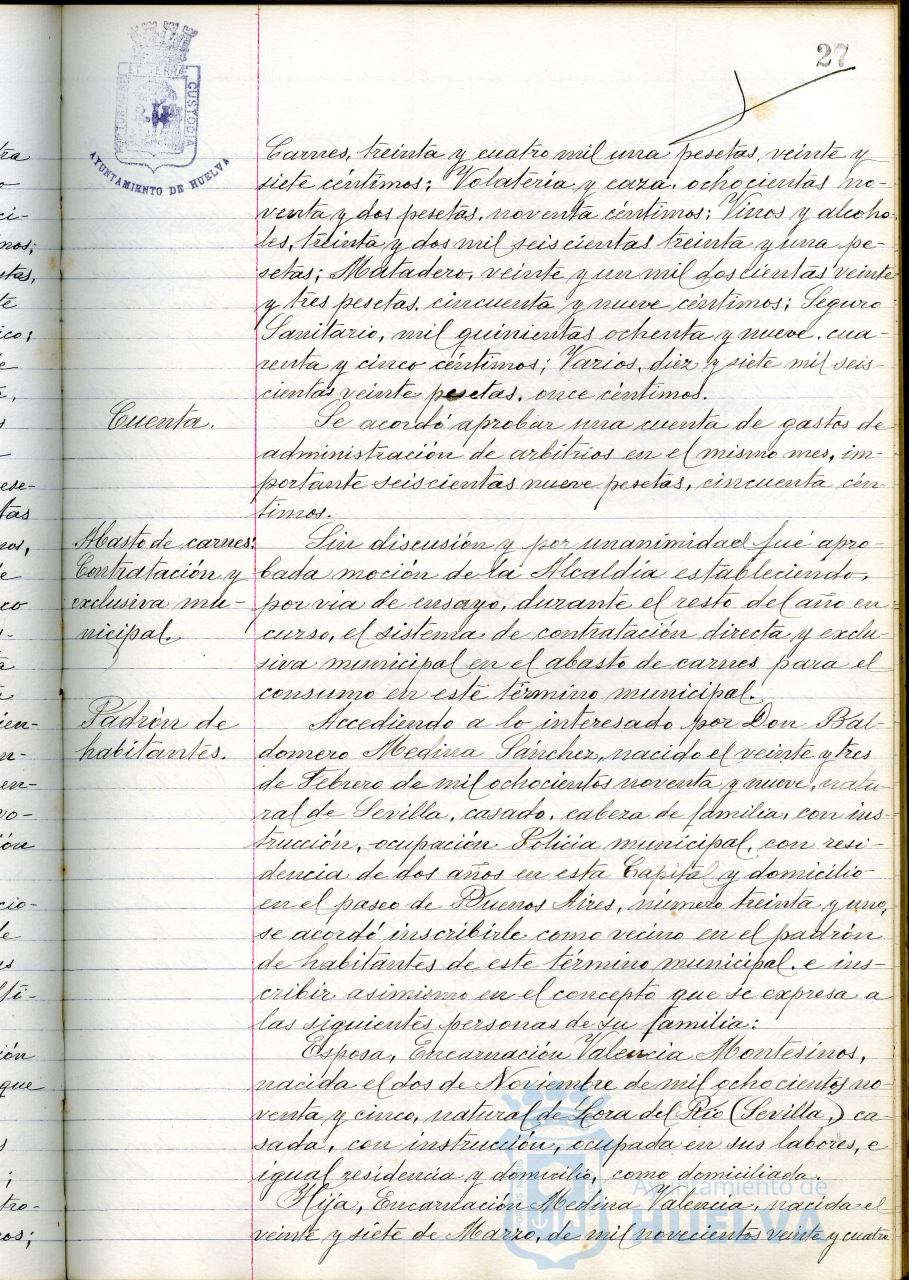 27
ET TERRÆ
CUSTODIA
AYUNTAMIENTO DE HUELVA
Carnes, treinta y cuatro mil una pesetas, veinte y
siete céntimos; Volatería y caza, ochocientas no-
venta y dos pesetas, noventa céntimos; Vinos y alcoho-
les, treinta y dos mil seiscientas treinta y una pe-
setas; Matadero, veinte y un mil doscientas veinte
y tres pesetas, cincuenta y nueve céntimos; Seguro
Sanitario, mil quinientas ochenta y nueve, cua-
renta y cinco céntimos; Varios, diez y siete mil seis-
cientas veinte pesetas, once céntimos.
Cuenta.
Se acordó aprobar una cuenta de gastos de
administración de arbitrios en el mismo mes, im-
portante seiscientas nueve pesetas, cincuenta cén-
timos.
Abasto de carnes:
Contratación y
exclusiva mu-
nicipal.
Sin discusión y por unanimidad fué apro-
bada moción de la Alcaldía estableciendo,
por via de ensayo, durante el resto del año en
curso, el sistema de contratación directa y exclu-
siva municipal en el abasto de carnes para el
consumo en este término municipal.
Padrón de
habitantes.
Accediendo a lo interesado por Don Bal-
domero Medina Sanchez, nacido el veinte y tres
de Febrero de mil ochocientos noventa y nueve, natu-
ral de Sevilla, casado, cabeza de familia, con ins-
trucción, ocupación Policía municipal, con resi-
dencia de dos años en esta Capital y domicilio
en el paseo de Buenos Aires, número treinta y uno,
se acordó inscribirle como vecino en el padrón
de habitantes de este término municipal, e ins-
cribir asimismo en el concepto que se expresa a
las siguientes personas de su familia:
Esposa, Encarnación Valencia Montesinos,
nacida el dos de Noviembre de mil ochocientos no-
venta y cinco, natural de Lora del Río (Sevilla,) ca-
sada, con instrucción, ocupada en sus labores, e
igual residencia y domicilio, como domiciliada.
Hija, Encarnación Medina Valencia, nacida el
veinte y siete de Marzo, de mil novecientos veinte y cuatro
Ayuntamiento de
HUELVA